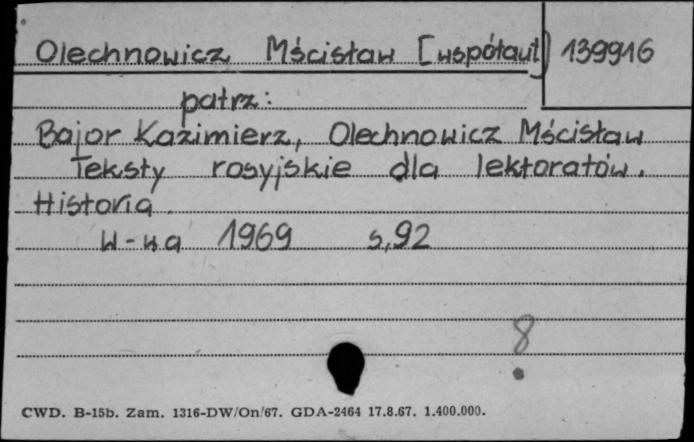 Olechnowicz Mścisław [współaut] 139916
patrz:
Bajor Kazimierz, Olechnowicz Mścisław
Teksty rosyjskie dla lektoratów.
Historia.
W-wa 1969 s,92
8
CWD. B-15b. Zam. 1316-DW/On/67. GDA-2464 17.8.67. 1.400.000.